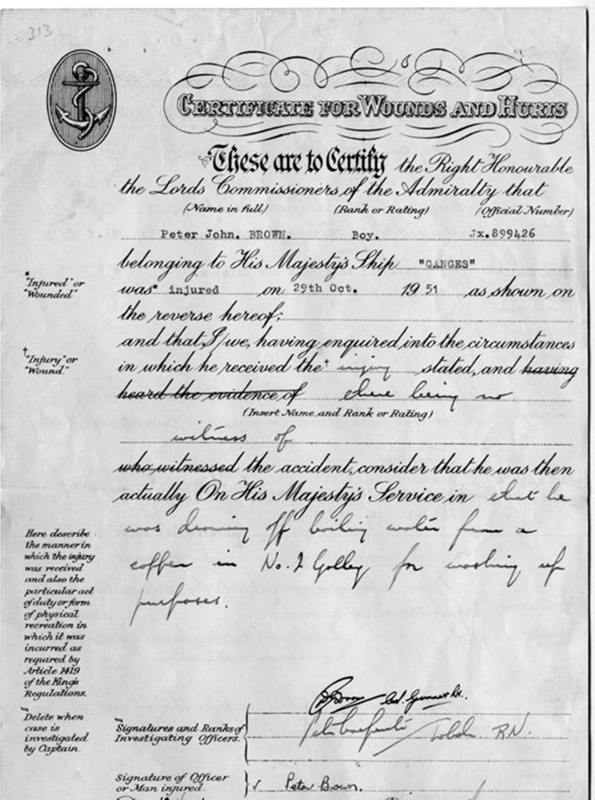 313
CERTIFICATE FOR WOUNDS AND HURTS
These are to Certify the Right Honourable
the Lords Commissioners of the Admiralty that
(Name in full) (Rank or Rating) (Official Number)
Peter John. BROWN. Boy. Jx.899426
belonging to His Majesty's Ship "GANGES"
*"Injured" or "Wounded"
was* injured on 29th Oct. 1951 as shown on
the reverse hereof;
and that, I/we, having enquired into the circumstances
†"Injury" or "Wound."
in which he received the† injury stated, and having
heard the evidence of there being no
(Insert Name and Rank or Rating)
witness of
who witnessed the accident, consider that he was then
actually On His Majesty's Service in that he
was drawing off boiling water from a
copper in No. 2 Galley for washing up
purposes.
Here describe
the manner in
which the injury
was received
and also the
particular act
of duty or form
of physical
recreation in
which it was
incurred as
required by
Article 1419
of the King's
Regulations.
Delete when
case is
investigated
by Captain.
Signatures and Ranks of
Investigating Officers.
RN.
Signature of Officer
or Man injured. Peter Brown.